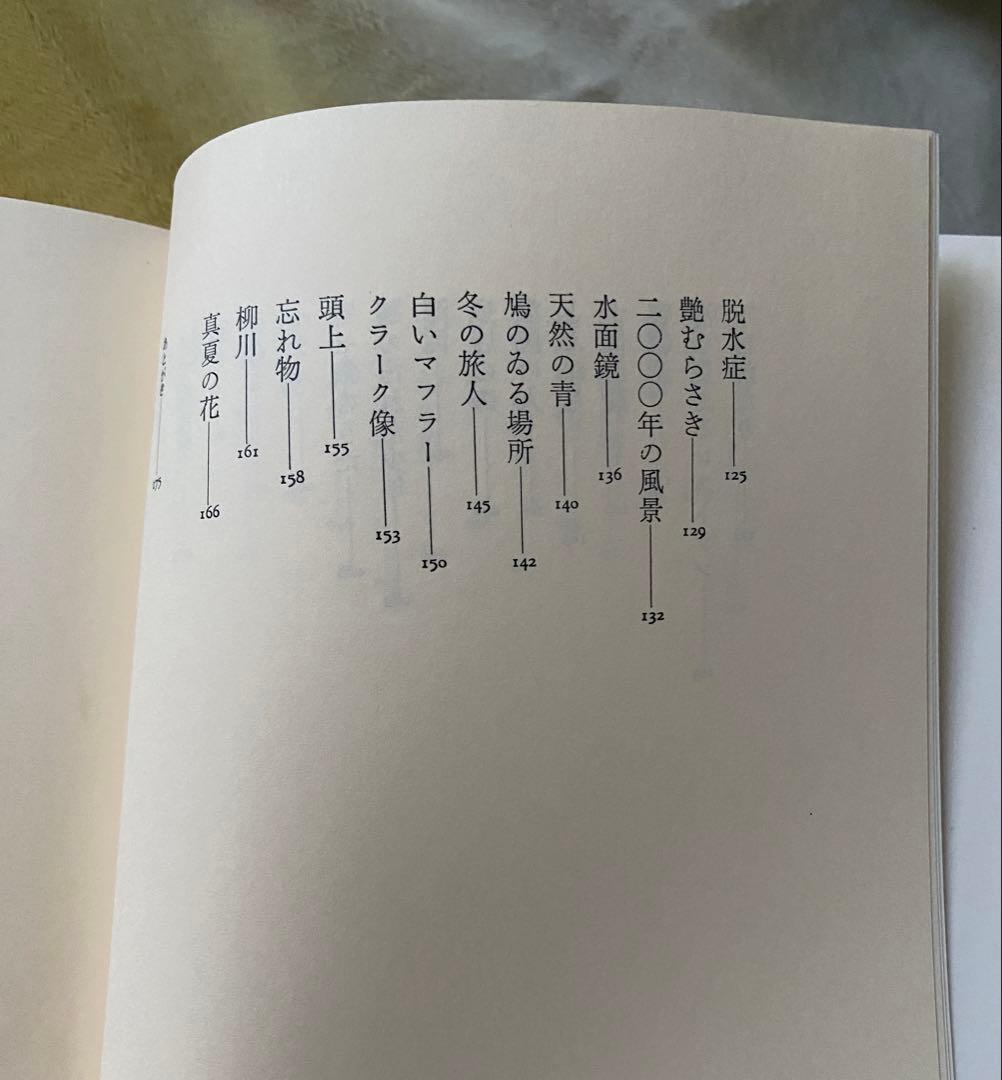 脱水症 125
艶むらさき 129
二〇〇〇年の風景 132
水面鏡 136
天然の青 140
鳩のゐる場所 142
冬の旅人 145
白いマフラー 150
クラーク像 153
頭上 155
忘れ物 158
柳川 161
真夏の花 166
あとがき 175